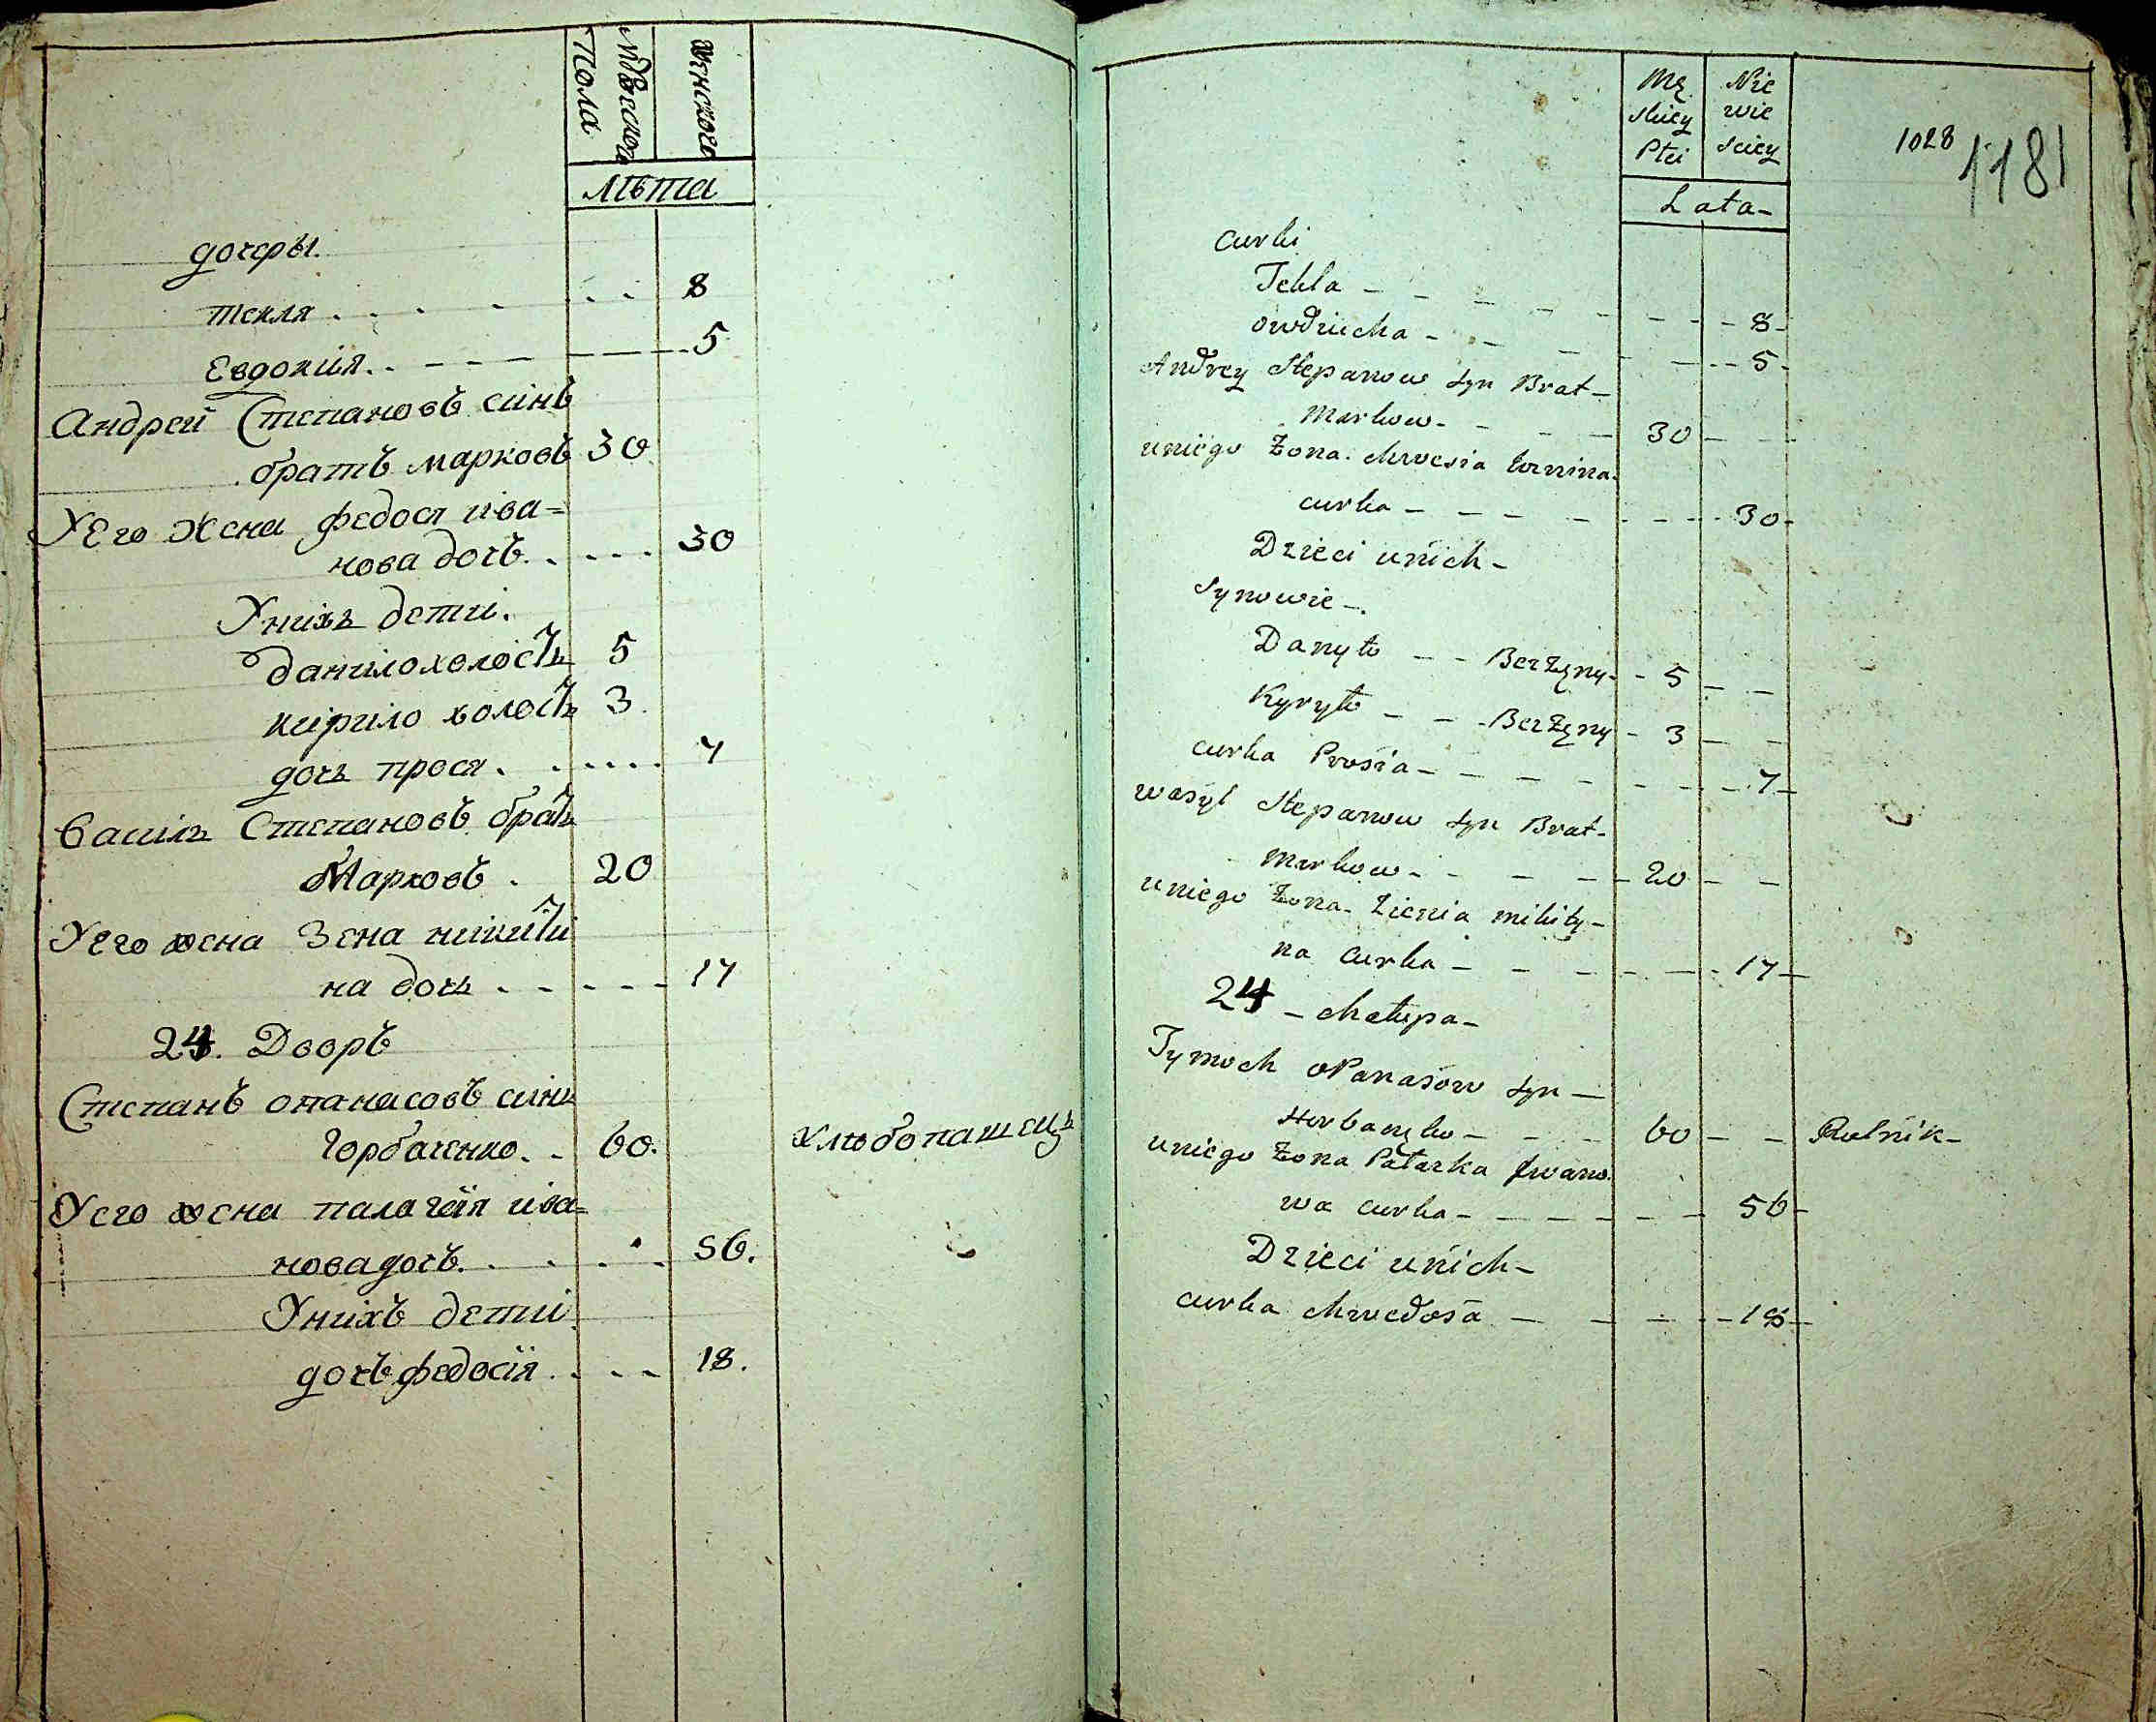 Пола
Мужеского
женского
лѣта
дочеры.
текля . . . . . . 8
Евдокия. . - - - - - - 5
Андрей Степановъ синъ
братъ марковъ 30
УЕго жена федося ива=
нова дочъ. . - - - 30
Унихъ дети.
данило холостъ 5
кирило холостъ 3
дочь прося . . . . . 7
Василь Степановъ братъ
Марковъ . 20
Уего жена Зена никити
на дочь . - - - - 17
24. Дворъ
Степанъ опанасовъ синъ
Горбаченко. - 60. хлѣбопашецъ
Уего жена палагея ива=
нова дочъ. . . . . 56.
Унихъ дети
дочъ федосія . . - - 18.
Mę
skiey
Płci
Nie
wie
sciey
1028
1181
Lata-
Curki
Tekla - - - - - - - - 8-
owdiucha - - - - - - - 5-
Andrey Stepanow syn Brat-
Markow- - - - - 30 - -
uniego Żona. chwesia
curka - - - - - - - - 30-
Dzieci unich-
Synowie-.
Danyło - - Bezżęny- - 5 - -
Kyryło - - -Bezżęny - 3 - -
curka Prosia- - - - - - - - 7-
wasyl Stepanow syn Brat-
Markow- - - - - 20 - -
uniego Żona- Zienia mikity-
na curka - - - - - - - 17-
24 - chałupa-
Tymoch oPanasow syn -
Horbaczęko- - - - 60 - - Rolnik-
uniego Żona Pałazka Jwano
wa curka- - - - - - - 56-
Dzieci unich-
curka chwedosia - - - - - 18-